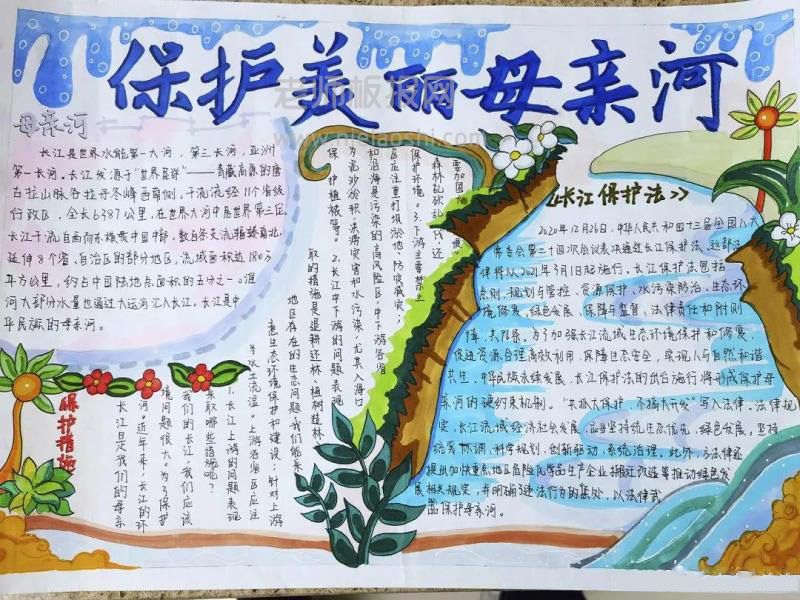 保护美丽母亲河
老师板报网
母亲河
长江是世界水能第一大河，第三长河，亚洲
第一长河。长江发源于“世界屋脊”——青藏高原的唐
古拉山脉各拉丹冬峰西南侧。干流流经11个省级
行政区，全长6387公里，在世界大河中居世界第三位。
长江干流自西而东横贯中国中部，数百条支流辐辏南北，
延伸8个省、自治区的部分地区，流域面积达180万
平方公里，约占中国陆地总面积的五分之一。淮
河大部分水量也通过大运河汇入长江。长江是中
华民族的母亲河。
保护措施
长江是我们的母亲
河。近年来，长江的环
境问题很大。为了保护
我们的长江，我们应该
采取哪些措施呢？
1.长江上游的问题表现
为水土流
上游各省区应注
意生态环境保护和建设；针对上游
地区存在的生态问题，我们能采
取的措施是退耕还林、植树造林、
保护植被等。2.长江中下游的问题表现
为泥沙淤积、洪涝灾害和水污染，尤其入海口
和沿海是污染的高风险区，中下游各省
区应注重打坝淤地、防灾减灾，
保护环境。3.下游主要禁止
森林乱砍乱伐，还
《长江保护法》
2020年12月26日，中华人民共和国十三届全国人大
常委会第二十四次会议表决通过长江保护法，这部法
律将从2021年3月1日起施行。长江保护法包括
总则、规划与管控、资源保护、水污染防治、生态环
境修复、绿色发展、保障与监督、法律责任和附则
9章，共96条。为了加强长江流域生态环境保护和修复，
促进资源合理高效利用，保障生态安全，实现人与自然和谐
共生、中华民族永续发展，长江保护法的出台施行将形成保护母
亲河的硬约束机制。“共抓大保护、不搞大开发”写入法律。法律规
定，长江流域经济社会发展，应当坚持生态优先、绿色发展，坚持
统筹协调、科学规划、创新驱动、系统治理。此外，该法律还
提出加快重点地区危险化学品生产企业搬迁改造等推动绿色发
展相关规定，并明确了违法行为的惩处，以法律武
器保护母亲河。